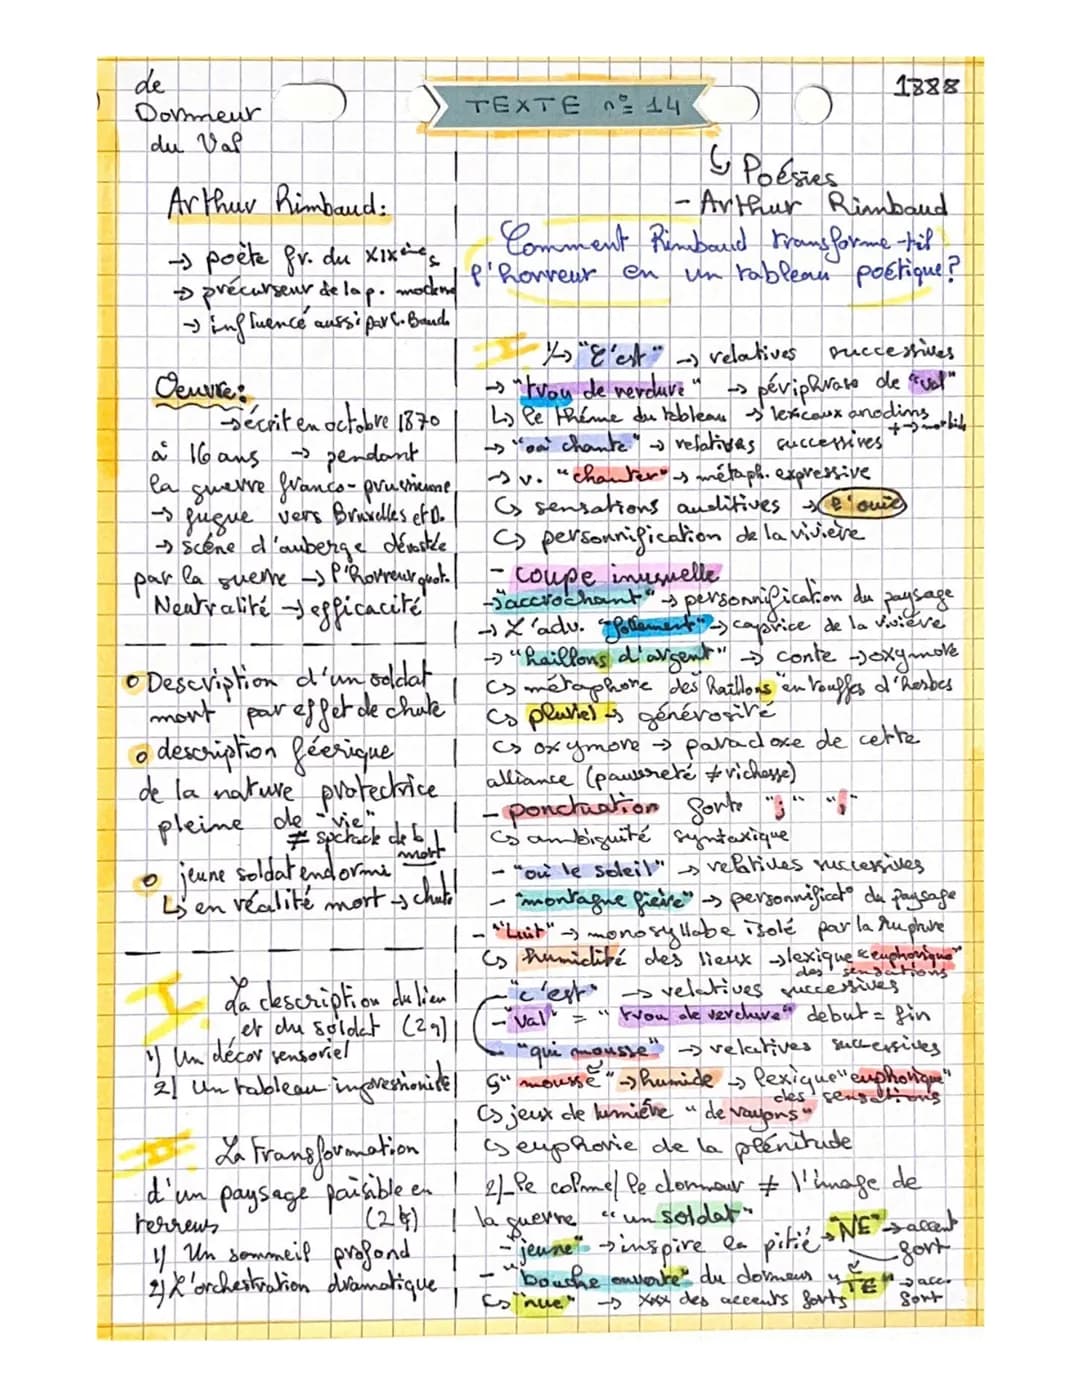 de
Dormeur
du Val
TEXTE n° 14
1888
↳ Poésies
- Arthur Rimbaud
Arthur Rimbaud:
→ poète fr. du XIXème s
→ précurseur de la p. moderne
→ influencé aussi par C. Baud.
Comment Rimbaud transforme-til
l'horreur en un tableau poétique?
Oeuvre:
→ écrit en octobre 1870
à 16 ans → pendant
la guerre franco-prussienne
→ fugue vers Bruxelles et D.
→ scène d'auberge dévastée
par la guerre → l'Horreur quot.
Neutralité → efficacité
o Description d'un soldat
mort par effet de chute
o description féerique
de la nature protectrice
pleine de "vie"
≠ spectacle de la
mort
o jeune soldat endormi
↳ en réalité mort → chute
I. La description du lieu
et du soldat (2q)
1) Un décor sensoriel
2) Un tableau impressioniste
II. La transformation
d'un paysage paisible en
terreurs (2t)
1) Un sommeil profond
2) L'orchestration dramatique
I. 1/→ "C'est" → relatives successives
→ "trou de verdure" → périphrase de "val"
↳ le thème du tableau → lexicaux anodins
+→ morbide
→ "où chante" → relatives successives
→ v. "chanter" → métaph. expressive
↳ sensations auditives → l'ouïe
↳ personnification de la rivière
- coupe inusuelle
→ "accrochant" → personnification du paysage
→ L'adv. "follement" → caprice de la rivière
→ "haillons d'argent" → conte → oxymore
↳ métaphore des "haillons" en touffes d'herbes
↳ pluriel → générosité
↳ oxymore → paradoxe de cette
alliance (pauvreté ≠ richesse)
- ponctuation forte ";" "
↳ ambiguïté syntaxique
- "où le soleil" → relatives successives
- "montagne fière" → personnificat° du paysage
- "Luit" → monosyllabe isolé par la rupture
↳ humidité des lieux → lexique "euphorique"
des sensations
- "c'est" → relatives successives
- "Val" = "trou de verdure" début = fin
- "qui mousse" → relatives successives
↳ "mousse" → humide → lexique "euphorique"
des sensations
↳ jeux de lumière "de rayons"
↳ euphorie de la plénitude
2/- le calme/ le dormeur ≠ l'image de
la guerre "un soldat"
- "jeune" → inspire la pitié → "NE" → accent
fort
- "bouche ouverte" du dormeur "TE" → acc.
fort
↳ "nue" → des accents forts